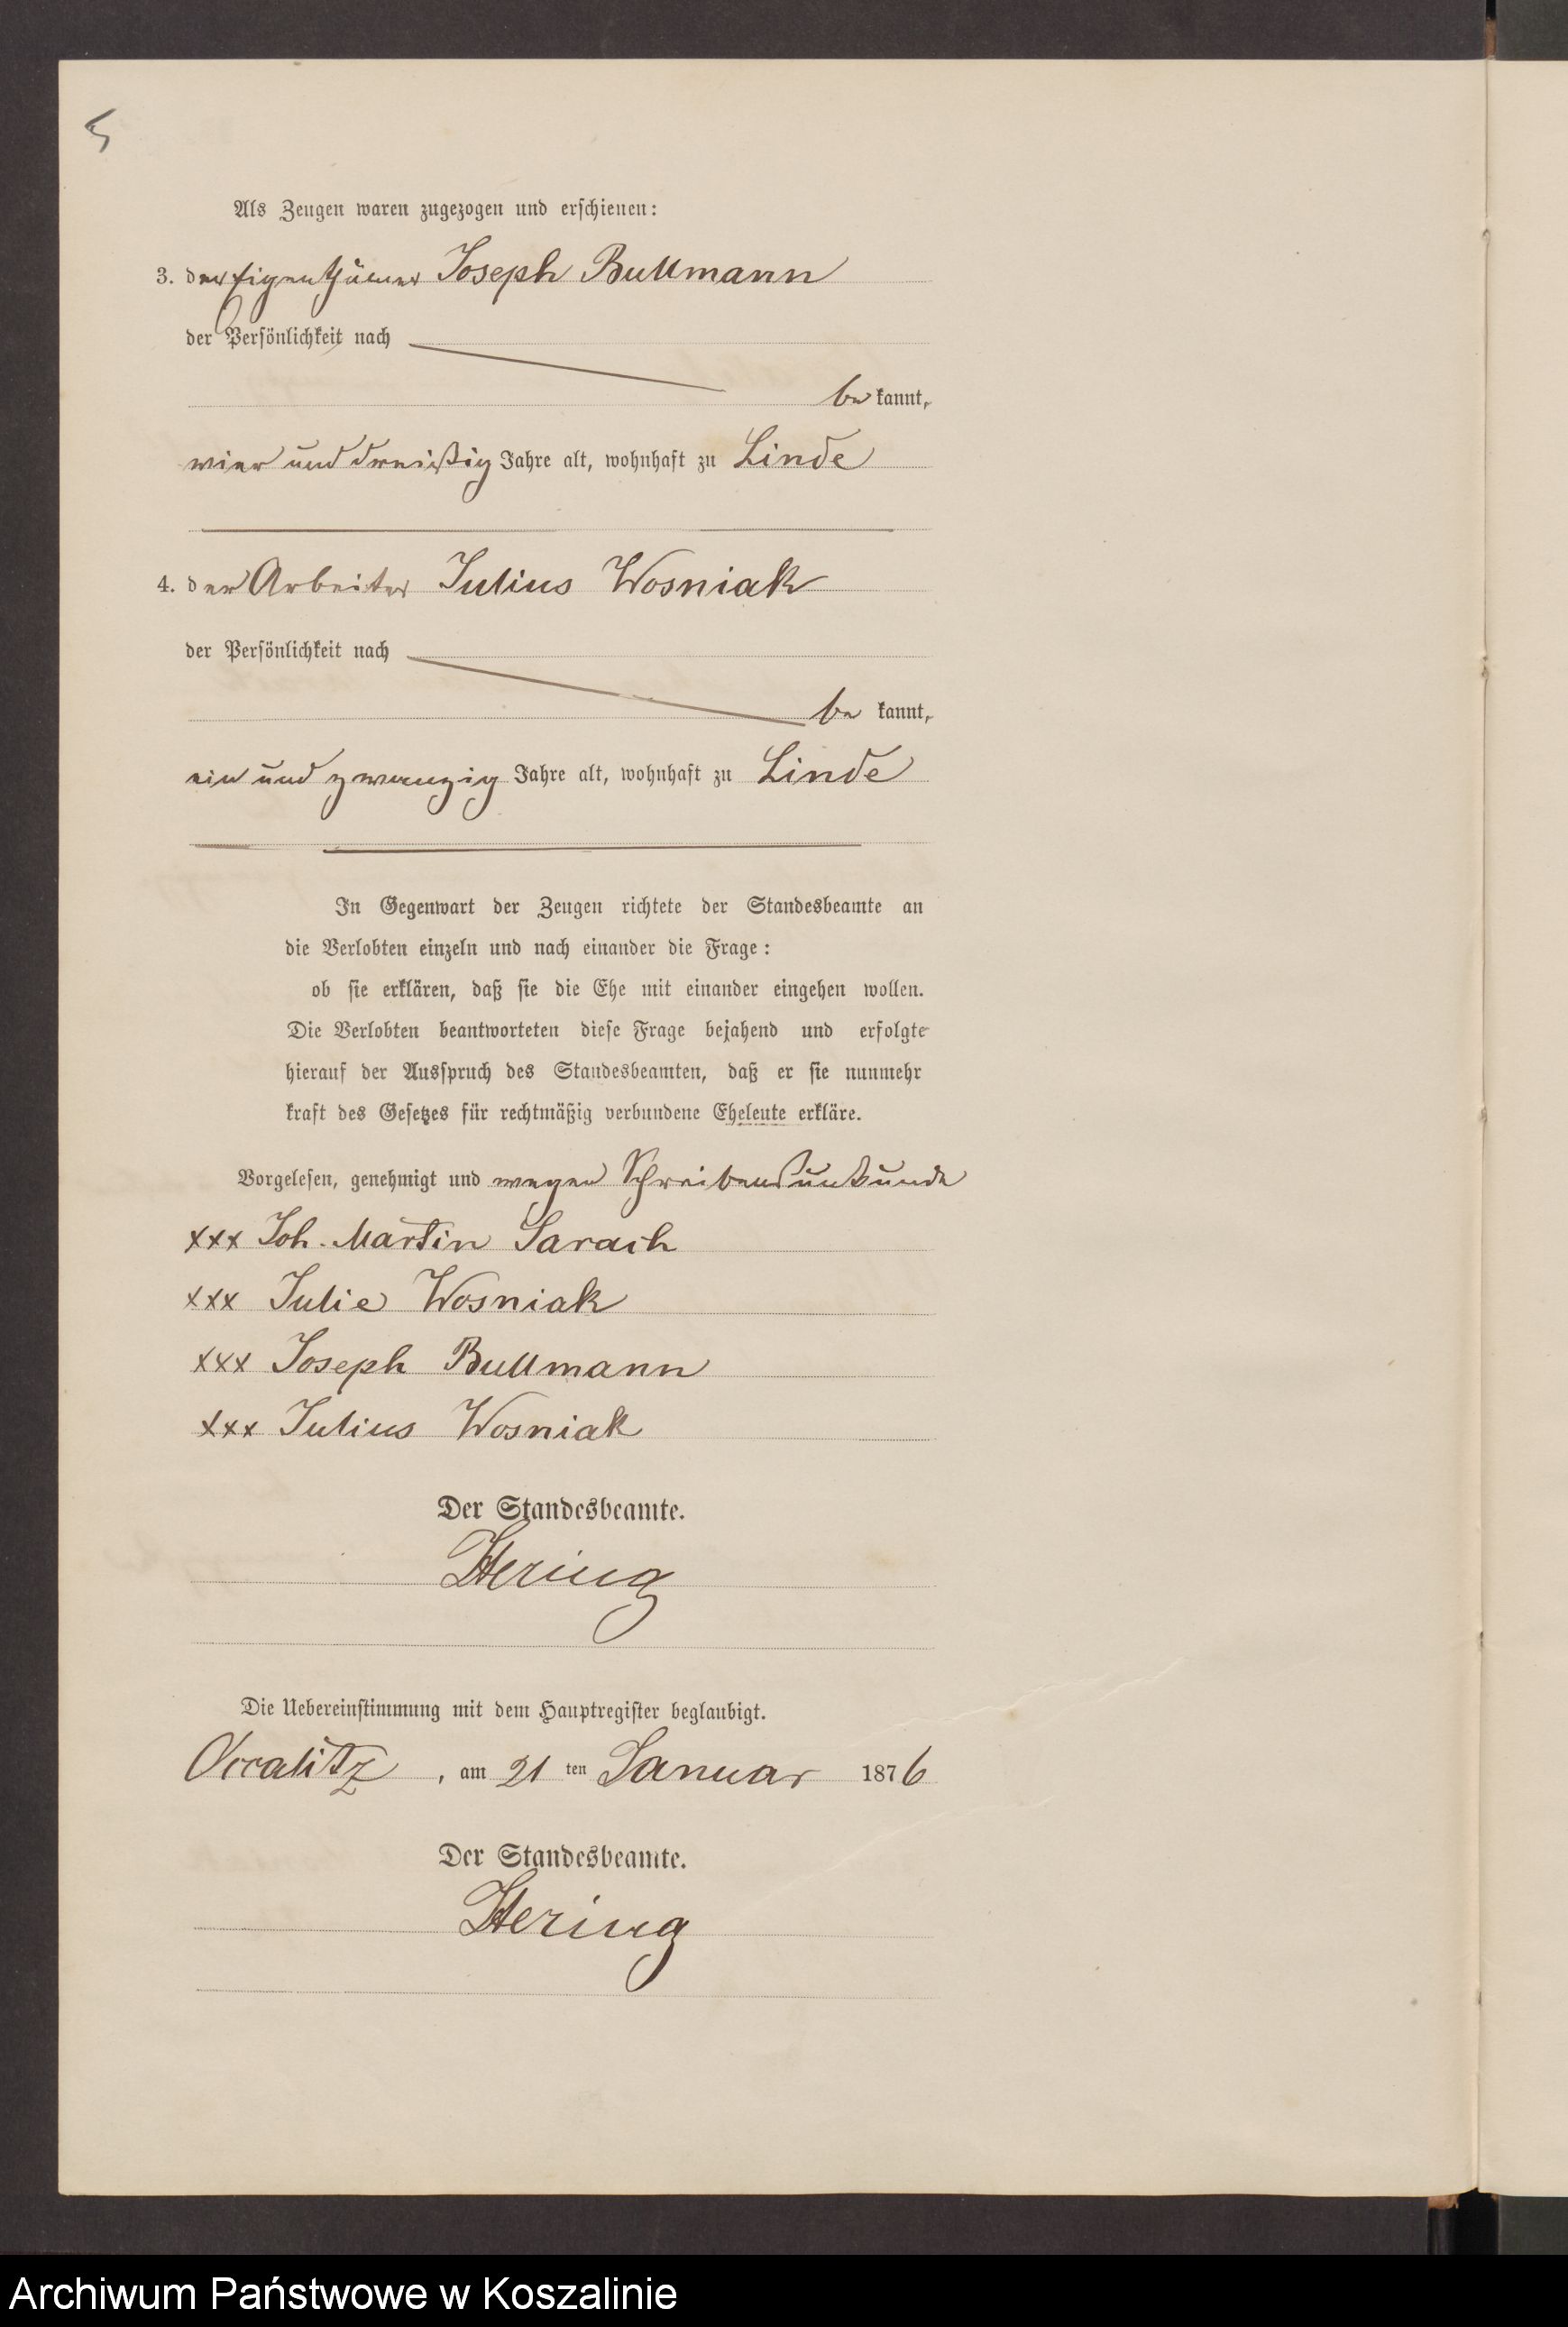 5
Als Zeugen waren zugezogen und erschienen:
3. der Eigenthümer Joseph Bullmann
der Persönlichkeit nach
be kannt,
vier und dreißig Jahre alt, wohnhaft zu Linde
4. der Arbeiter Julius Wosniak
der Persönlichkeit nach
be kannt,
ein und zwanzig Jahre alt, wohnhaft zu Linde
In Gegenwart der Zeugen richtete der Standesbeamte an
die Verlobten einzeln und nach einander die Frage:
ob sie erklären, daß sie die Ehe mit einander eingehen wollen.
Die Verlobten beantworteten diese Frage bejahend und erfolgte
hierauf der Ausspruch des Standesbeamten, daß er sie nunmehr
kraft des Gesetzes für rechtmäßig verbundene Eheleute erkläre.
Vorgelesen, genehmigt und wegen Schreibensunkunde
xxx Joh. Martin Sarach
xxx Julie Wosniak
xxx Joseph Bullmann
xxx Julius Wosniak
Der Standesbeamte.
Hering
Die Uebereinstimmung mit dem Hauptregister beglaubigt.
Occalitz, am 21 ten Januar 1876
Der Standesbeamte.
Hering
Archiwum Państwowe w Koszalinie